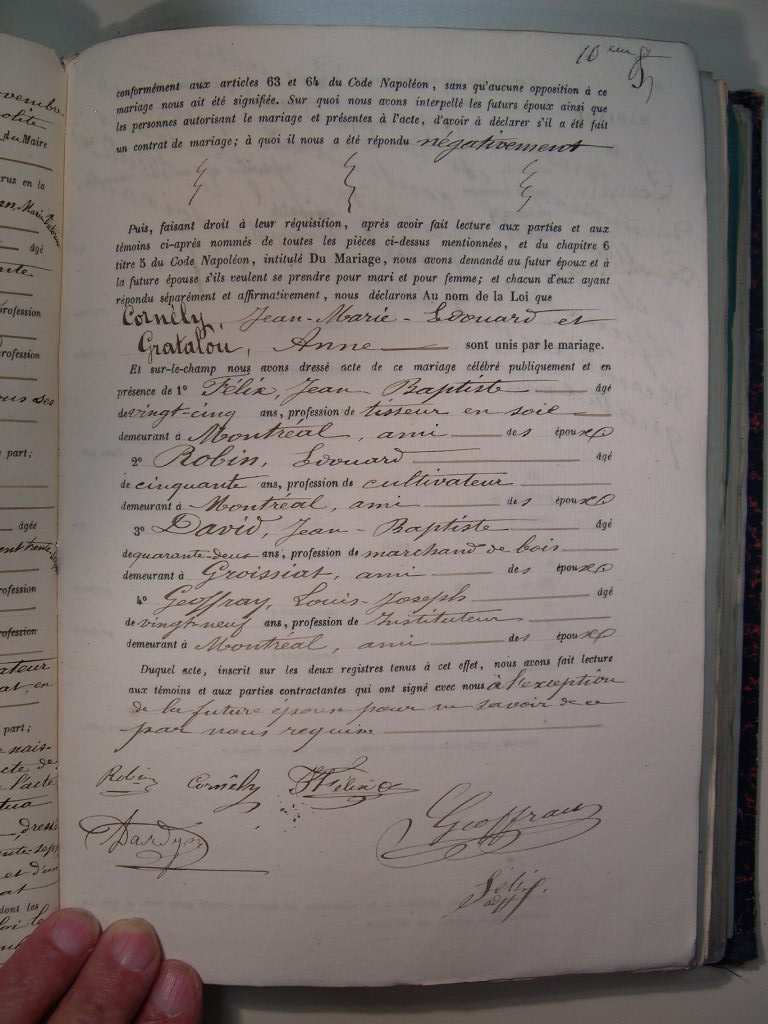 vembre
du Maire
rus en la
âgé
profession
ous ses
part;
âgée
profession
profession
part;
nais-
l'acte
dont les
10
conformément aux articles 63 et 64 du Code Napoléon, sans qu'aucune opposition à ce
mariage nous ait été signifiée. Sur quoi nous avons interpellé les futurs époux ainsi que
les personnes autorisant le mariage et présentes à l'acte, d'avoir à déclarer s'il a été fait
un contrat de mariage; à quoi il nous a été répondu négativement
Puis, faisant droit à leur réquisition, après avoir fait lecture aux parties et aux
témoins ci-après nommés de toutes les pièces ci-dessus mentionnées, et du chapitre 6
titre 5 du Code Napoléon, intitulé Du Mariage, nous avons demandé au futur époux et à
la future épouse s'ils veulent se prendre pour mari et pour femme; et chacun d'eux ayant
répondu séparément et affirmativement, nous déclarons Au nom de la Loi que
Cornély, Jean-Marie-Edouard et
Gratalou, Anne sont unis par le mariage.
Et sur-le-champ nous avons dressé acte de ce mariage célébré publiquement et en
présence de 1° Félix, Jean-Baptiste âgé
de vingt-cinq ans, profession de tisseur en soie
demeurant à Montréal, ami des époux
2° Robin, Edouard âgé
de cinquante ans, profession de cultivateur
demeurant à Montréal, ami des époux
3° David, Jean-Baptiste âgé
de quarante-deux ans, profession de marchand de bois
demeurant à Groissiat, ami des époux
4° Geoffray, Louis-Joseph âgé
de vingt-neuf ans, profession de Instituteur
demeurant à Montréal, ami des époux
Duquel acte, inscrit sur les deux registres tenus à cet effet, nous avons fait lecture
aux témoins et aux parties contractantes qui ont signé avec nous à l'exception
de la future épouse pour ne savoir de ce
par nous requise
Robin Cornély Félix
Geoffray